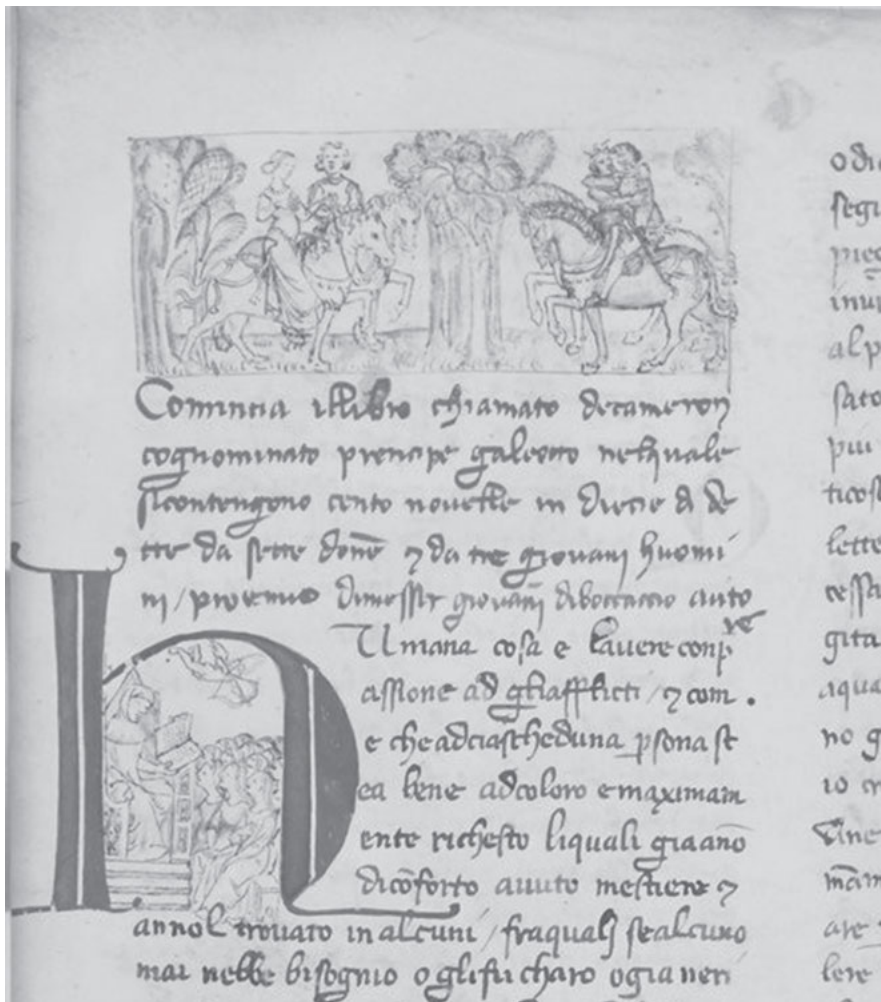 Comincia illibro chiamato decameron
cognominato prencipe galeotto nelquale
sicontengono cento novelle in diecie di de
tte da sette don̄e ⁊ da tre giovanj huomi
ni / proemio dimessir giovan̄j diboccaccio auto
re
Umana cosa e lauere conp
assione ad gliafflicti / ⁊ com .
e che adciascheduna p̱sona st
ea bene adcoloro e maximam
ente richesto liquali giaan̄o
dicōforto auuto mestiere ⁊
annol trouato in alcuni / fraqualj sealcuno
mai nebbe bisognio o glifu charo ogia neri
odi
segu
piec
al p
sato
piu
ticos
lette
cessa
gita
aqua
no g
io cr
mām
are
lere